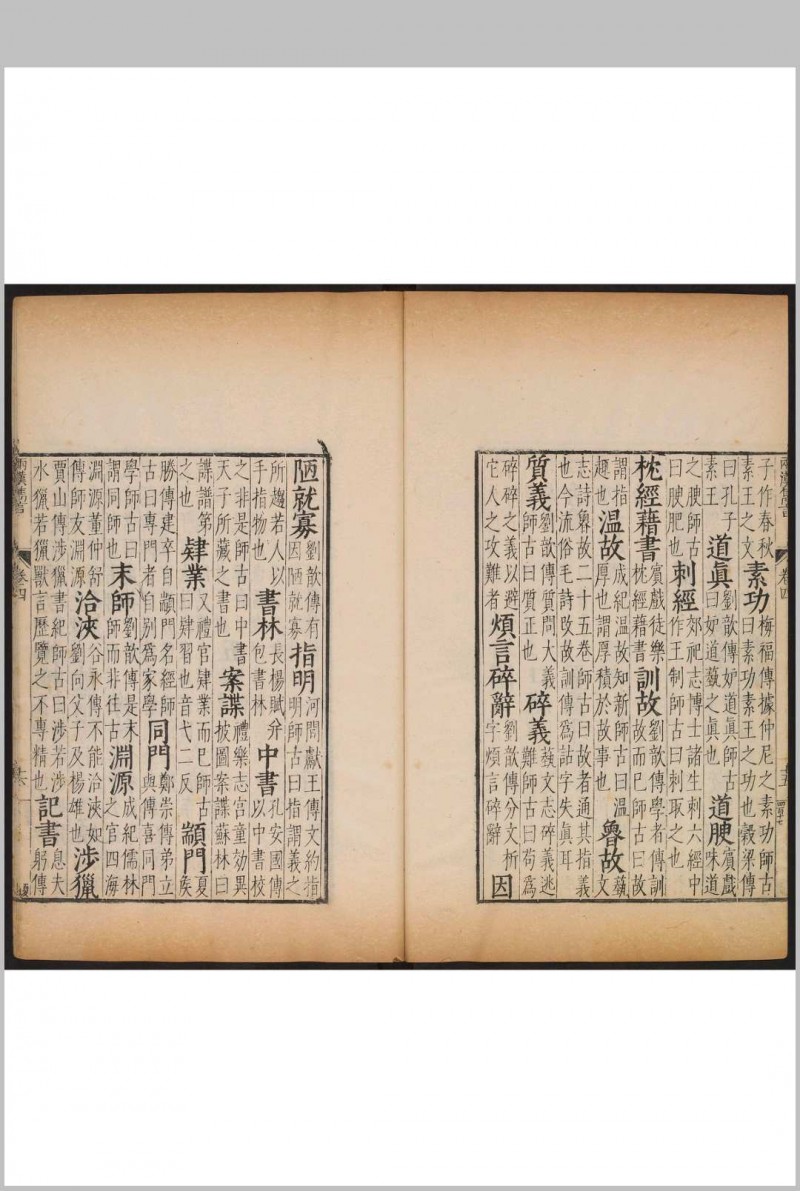 子作春秋素王之文素功梅福傳據仲尼之素功師古曰素功素王之功也穀梁傳
曰孔子素王道眞劉歆傳妒道眞師古曰妒道蓺之眞也道腴賓戲味道
之腴師古曰腴肥也刺經郊祀志博士諸生刺六經中作王制師古曰刺取之也
枕經藉書賓戲徒樂枕經藉書訓故劉歆傳學者傳訓故而巳師古曰故
謂指趣也温故成紀温故知新師古曰温厚也謂厚積於故事也魯故蓺文
志詩魯故二十五卷師古曰故者通其指義也今流俗毛詩改故訓傳爲詁字失眞耳
質義劉歆傳質問大義師古曰質正也碎義蓺文志碎義逃難師古曰苟爲
碎碎之義以避它人之攻難者煩言碎辭劉歆傳分文析字煩言碎辭因
陋就寡劉歆傳有因陋就寡指明河間獻王傳文約指明師古曰指謂義之
所趨若人以手指物也書林長楊賦幷包書林中書孔安國傳以中書校
之非是師古曰中書天子所藏之書也案諜禮樂志宫童効異披圖案諜蘇林曰
諜譜第之也肄業又禮官肄業而巳師古曰肄習也音弋二反顓門夏侯
勝傳建卒自顓門名經師古曰專門者自别爲家學同門鄭崇傳弟立與傳喜同門
學師古曰謂同師也末師劉歆傳是末師而非往古淵源成紀儒林之官四海
淵源董仲舒傳師友淵源洽浹谷永傳不能洽浹如劉向父子及楊雄也涉獵
賈山傳涉獵書紀師古曰涉若涉水獵若獵獸言歷覽之不專精也記書息夫躬傳
卷四